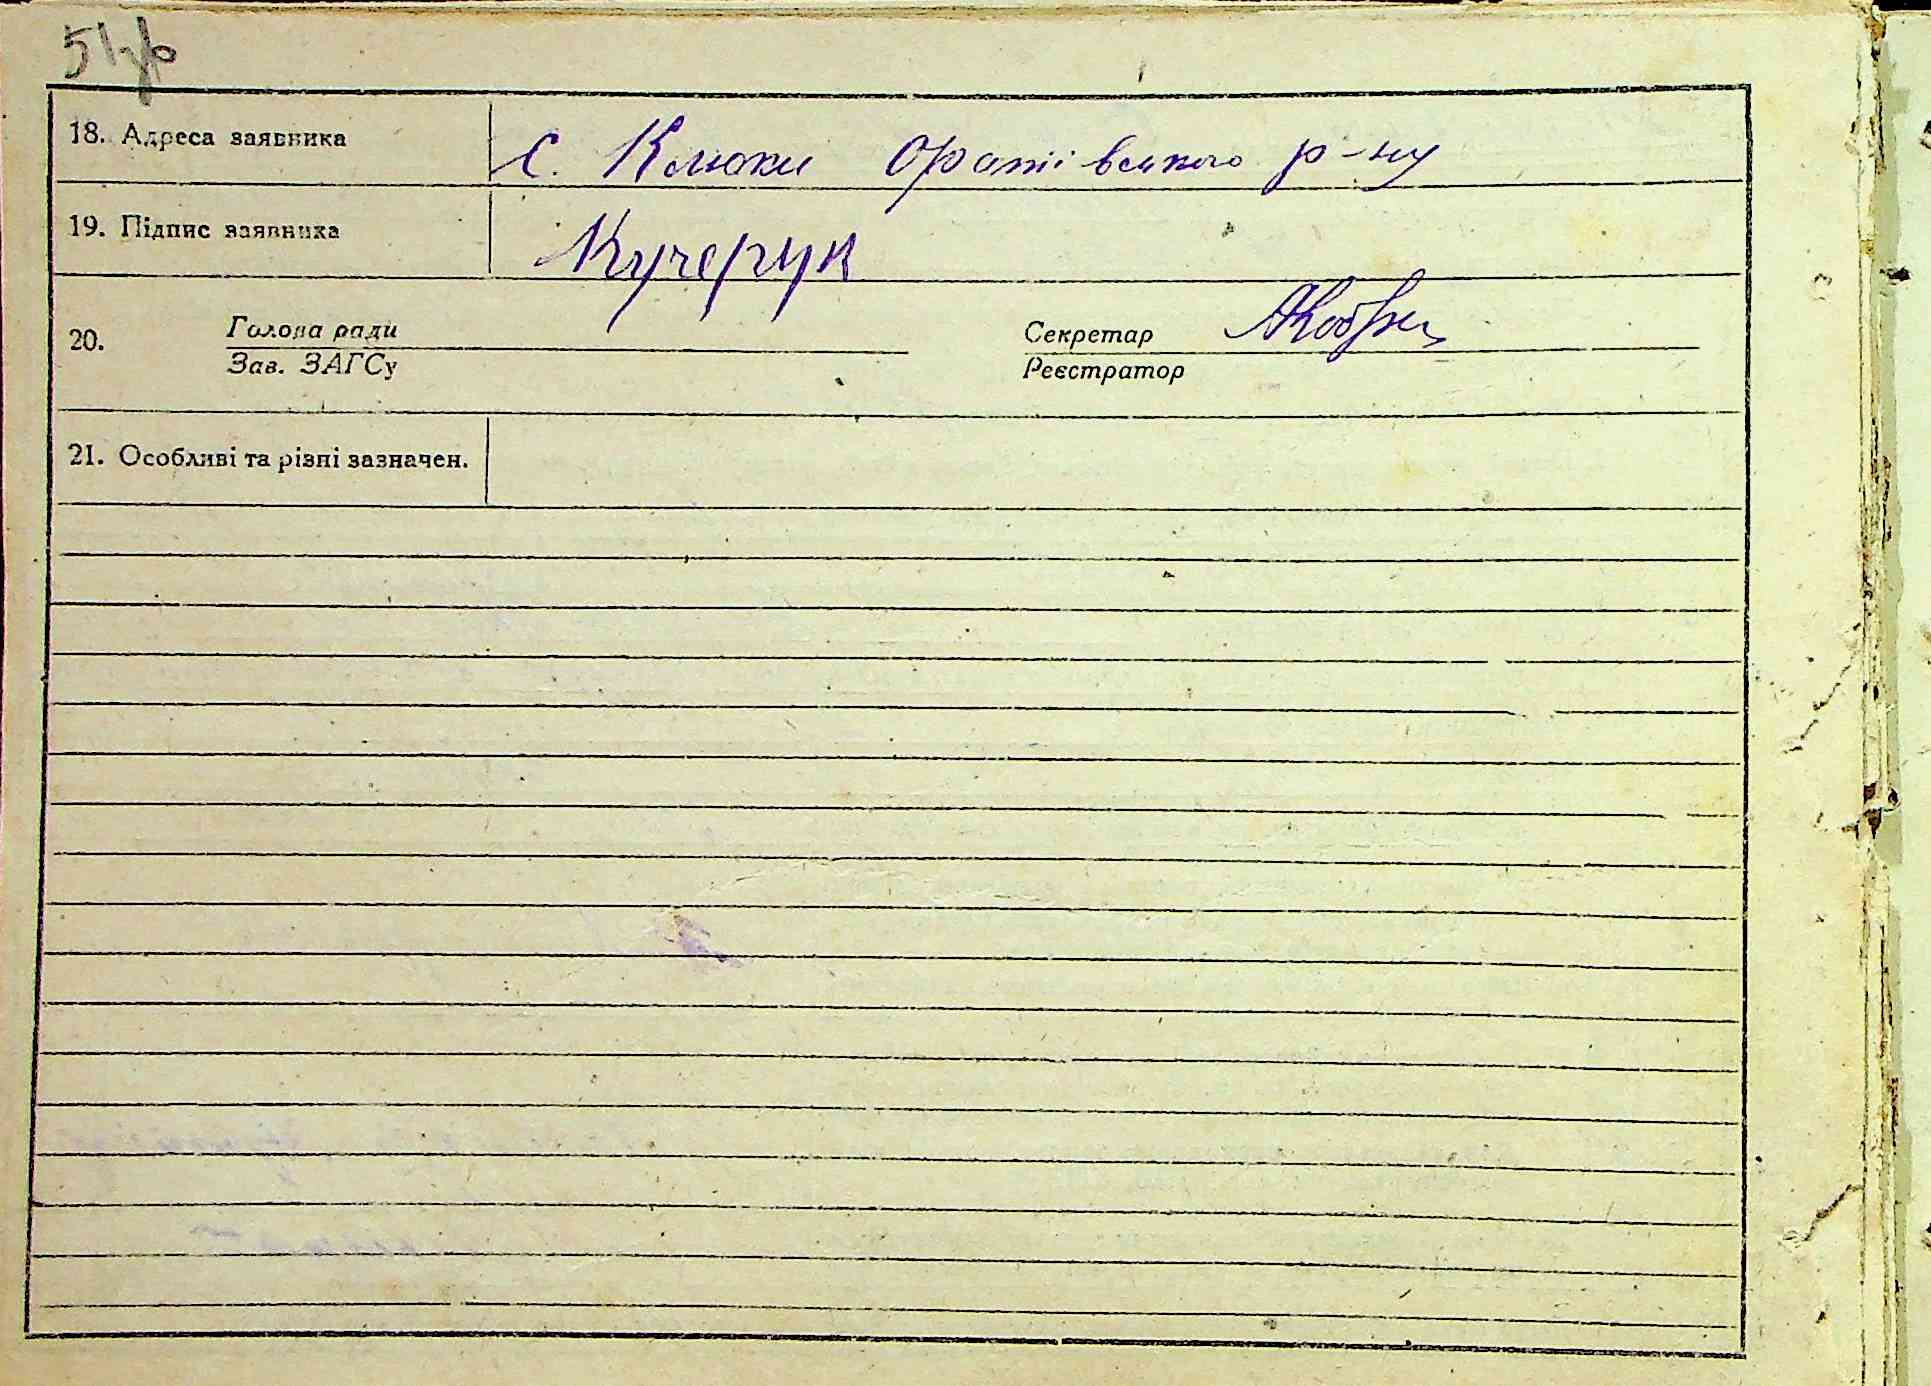 51зв
18. Адреса заявника
с. Клюки Оратівського р-ну
19. Підпис заявника
Кучерук
20.
Голова ради
Зав. ЗАГСу
Секретар
Реєстратор
21. Особливі та різні зазначен.